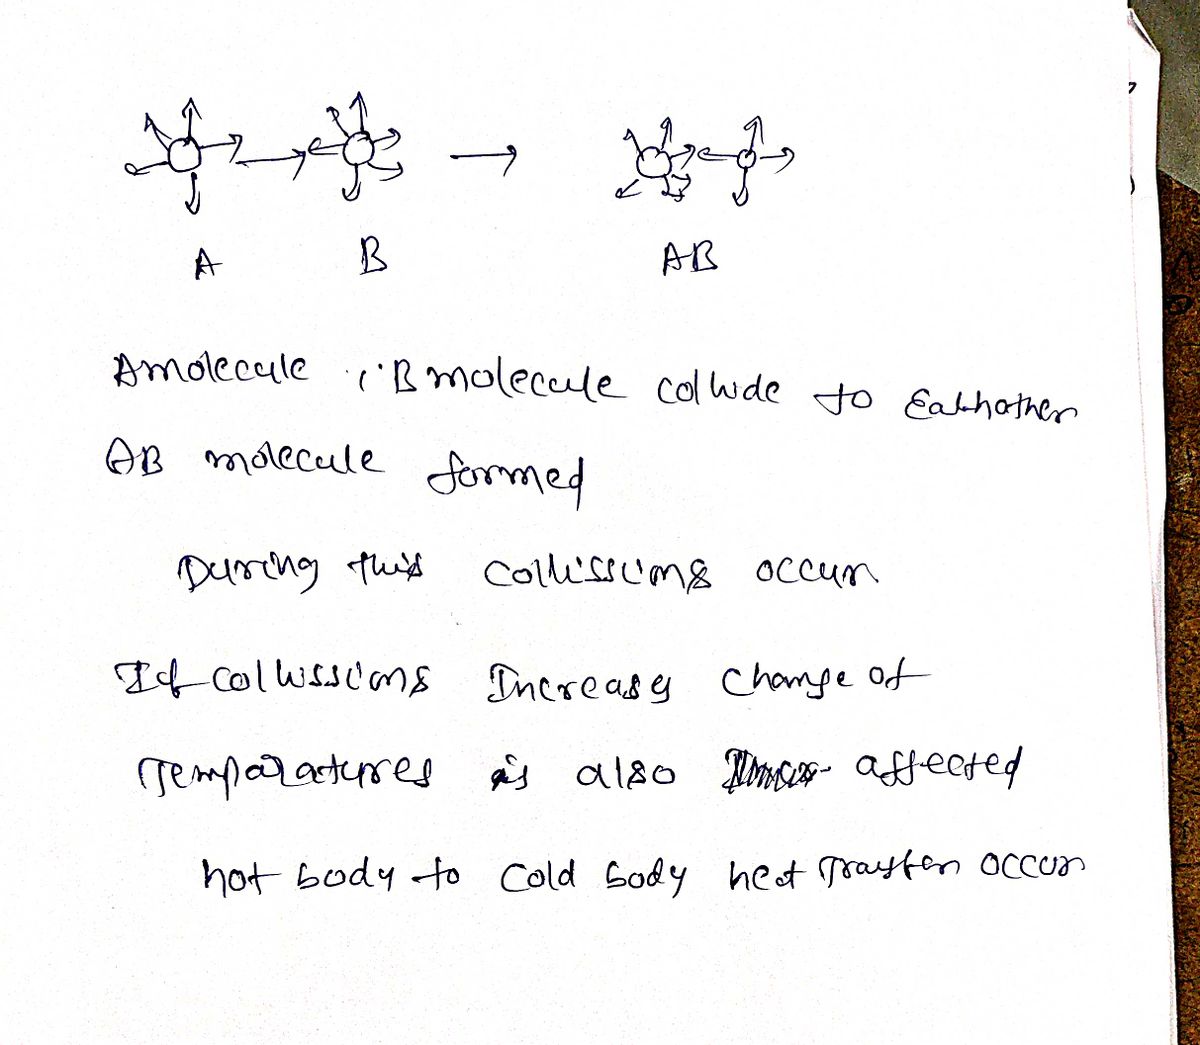 A B AB
A molecule , B molecule collide to Eachother
AB molecule formed
During this collissions occur
If collissions Increase change of
Temparatures is also affected
hot body to cold body heat Transfer occur